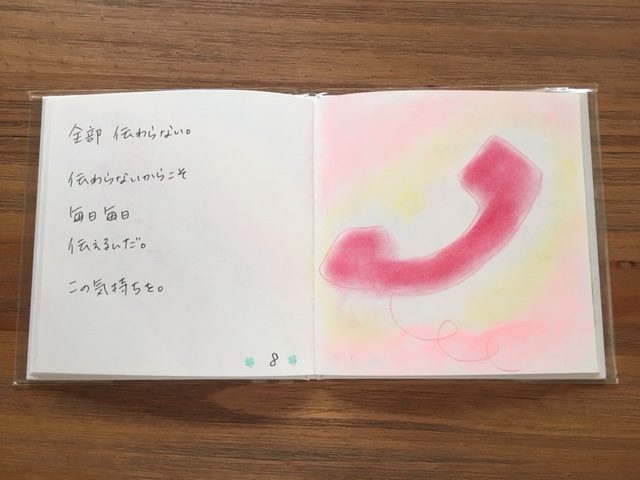 全部 伝わらない。
伝わらないからこそ
毎日毎日
伝えるんだ。
この気持ちを。
8